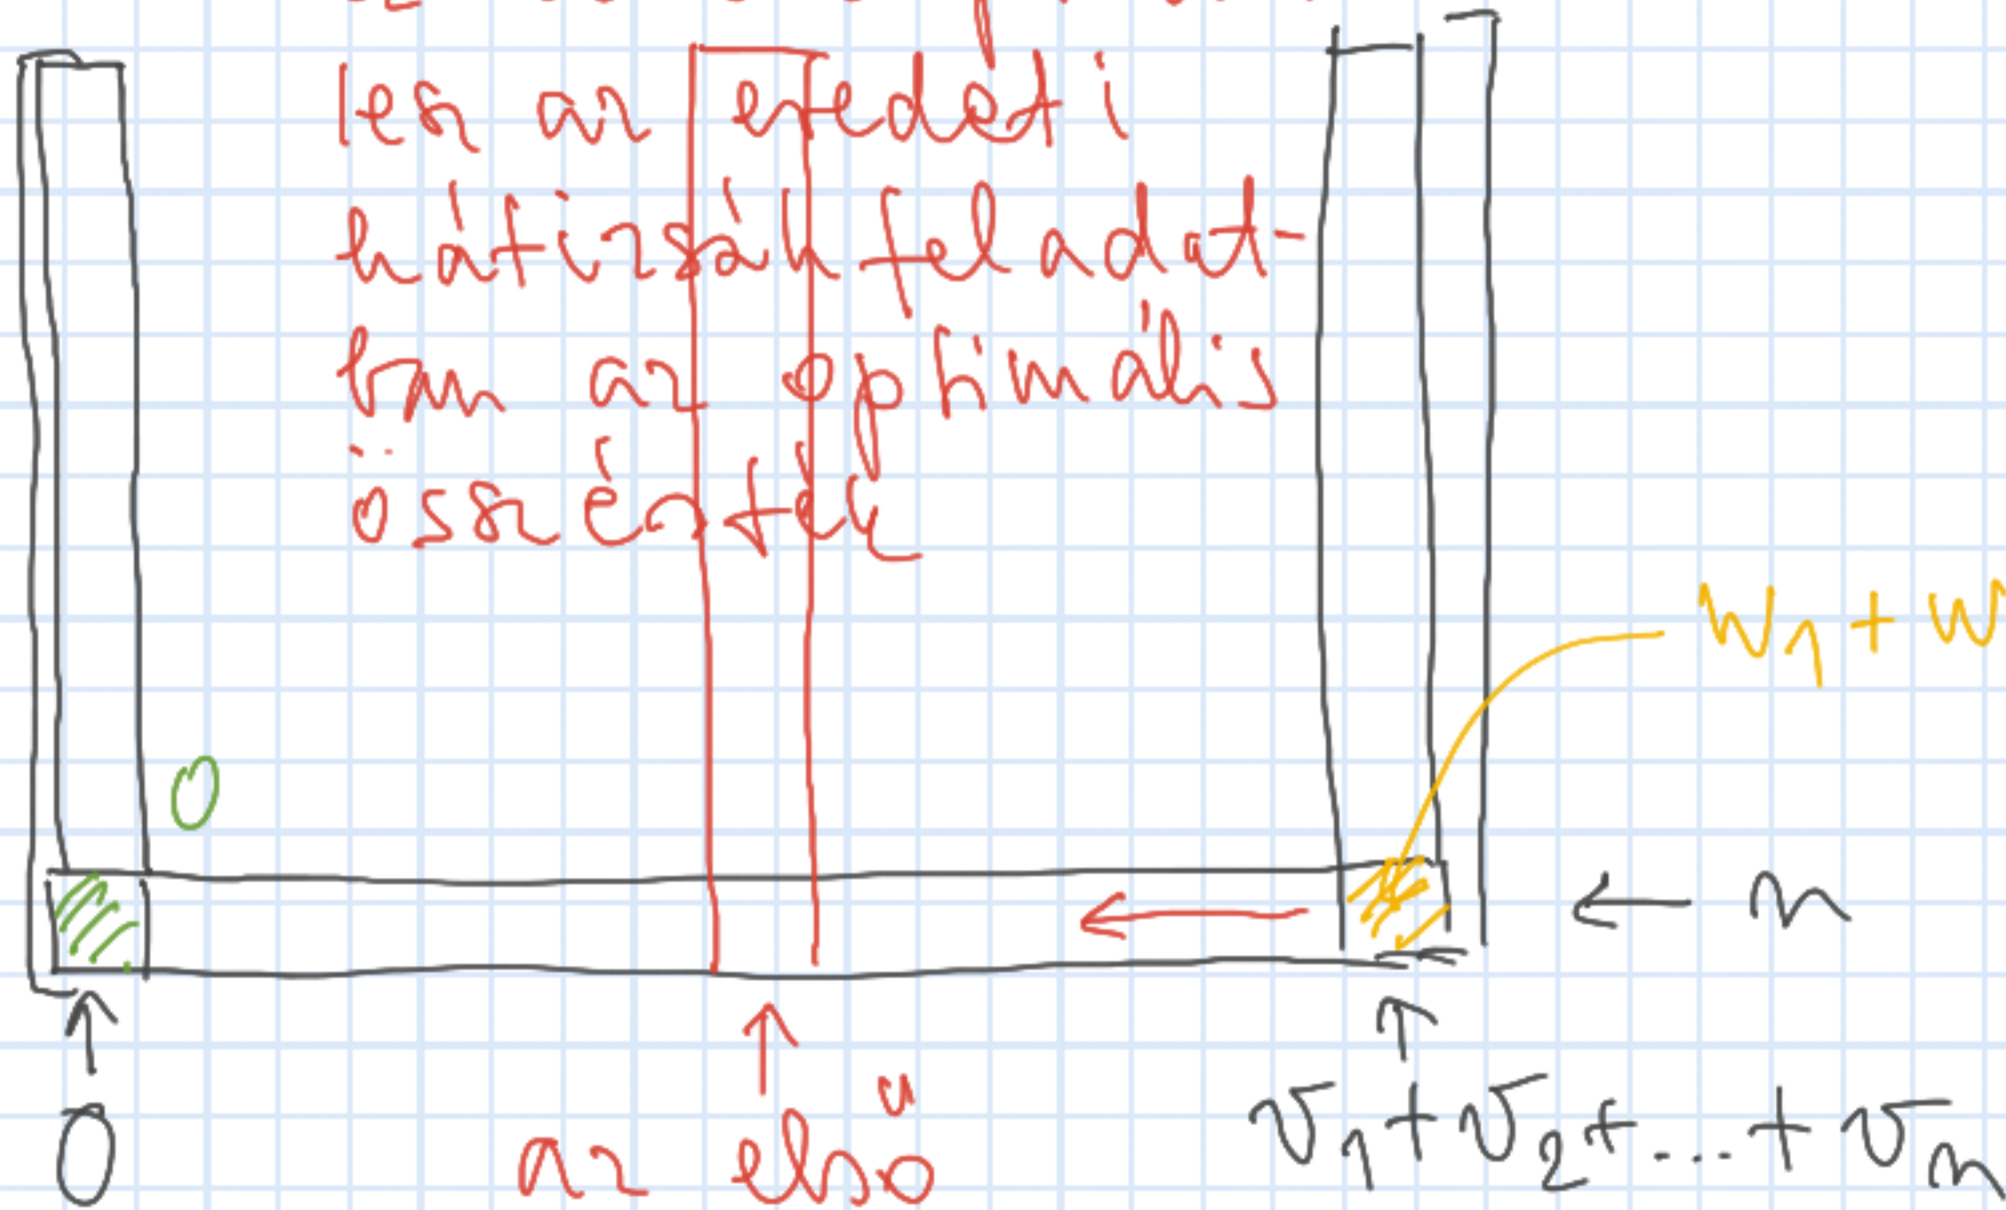 lesz az eredeti
hátizsák feladat-
ban az optimális
összérték
w₁ + w
0
← n
0
az első
v₁ + v₂ + ... + vₙ